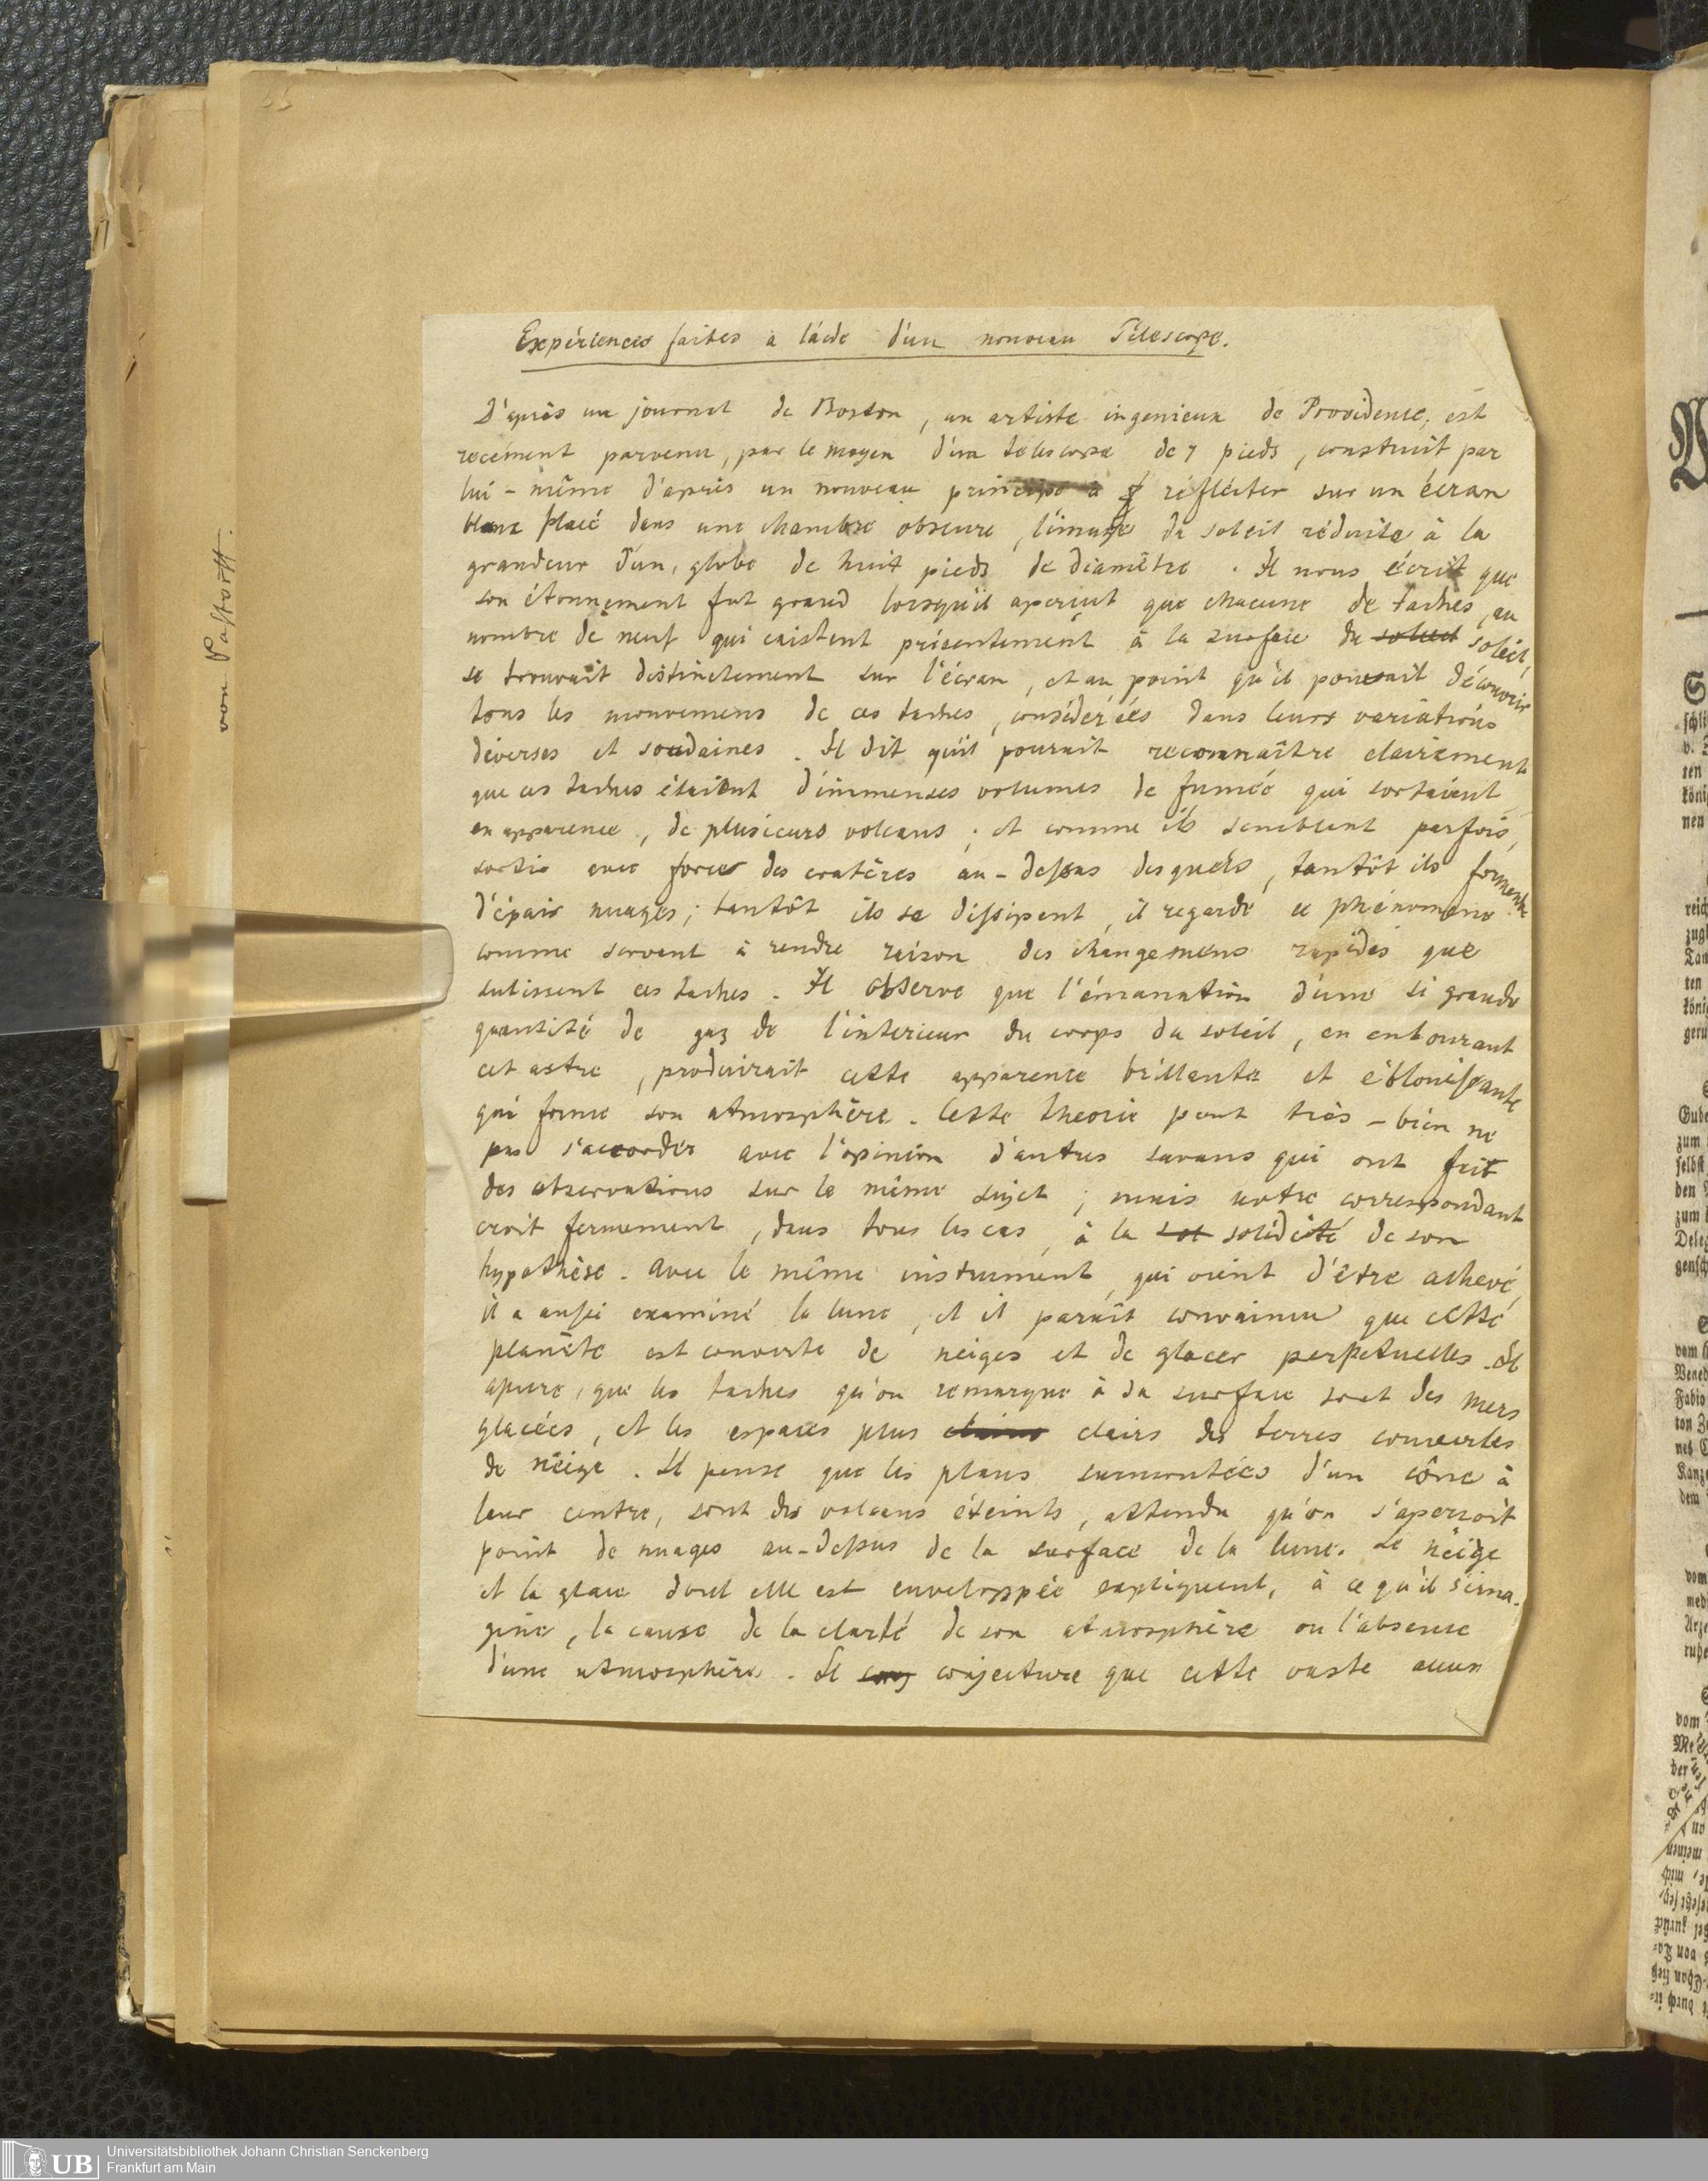 Expériences faites a l'áide d'un nouveau Télescope.
D'après un journal de Boston, un artiste ingenieux de Providence, est
recément parvenu, par le moyen d'un telescope de 7 pieds, construit par
lui-même d'après un nouveau principe à réfléter sur un écran
blanc placé dans une chambre obscure, l'image du soleil réduite à la
grandeur d'un, globe de huit pieds de diamètre. Il nous écrit que
son étonnement fut grand lorsqu'il aperçut que chacune de taches, au
nombre de neuf qui existent présentement à la surface du soleil soleil,
se trouvait distinctement sur l'écran, et au point qu'il pouvait découvrir
tous les mouvemens de ces taches, considérées dans leurs variations
diverses et soudaines. Il dit qu'il pouvait reconnaître clairement
que ces taches étaient d'immenses volumes de fumée qui sortaient
en apparence, de plusieurs volcans, et comme ils semblent parfois,
sortir avec force des cratères au-dessus desquels, tantôt ils forment
d'épais nuages; tantôt ils se dissipent, il regarde ce phénomène
comme servant à rendre raison des changemens rapides que
subissent ces taches. Il observe que l'émanation d'une si grande
quantité de gaz de l'interieur du corps du soleil, en entourant
cet astre, produirait cette apparence brillante et éblouissante
qui forme son atmosphère. Cette theorie peut très-bien ne
pas s'accorder avec l'opinion d'autres savans qui ont fait
des observations sur le même sujet; mais notre correspondant
croit fermement, dans tous les cas, à la sol solidité de son
hypothèse. Avec le même instrument, qui vient d'être achevé,
il a aussi examiné la lune, et il paraît convaincu que cette
planète est couverte de neiges et de glaces perpetuelles. Il
assure, que les taches qu'on remarque à sa surface sont des mers
glacées, et les espaces plus clairs clairs des terres couvertes
de neige. Il pense que les plans surmontées d'un cône à
leur centre, sont des volcans éteints, attendu qu'on s'aperçoit
point de nuages au-dessus de la surface de la lune. Le neige
et la glace dont elle est enveloppée expliquent, à ce qu'il s'ima-
gine, la cause de la clarté de son atmosphère ou l'absence
d'une atmosphère. Il conj conjecture que cette vaste
von Pastorff.
UB
Universitätsbibliothek Johann Christian Senckenberg
Frankfurt am Main